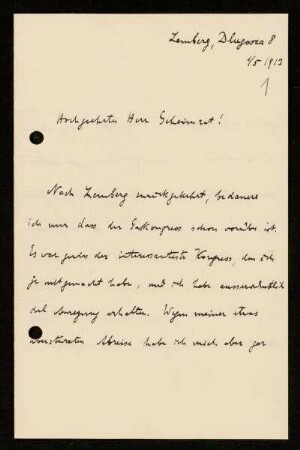 Lemberg, Długosza 8
1/5 1913
1
Hochgeehrter Herr Geheimrat!
Nach Lemberg zurückgekehrt, bedauere
ich nur dass der Gaskongress schon vorüber ist.
Es war gewiss der interessanteste Kongress, den ich
je mitgemacht habe, und ich habe ausserordentlich
viel Anregung erhalten. Wegen meiner etwas
überstürzten Abreise habe ich mich aber gar